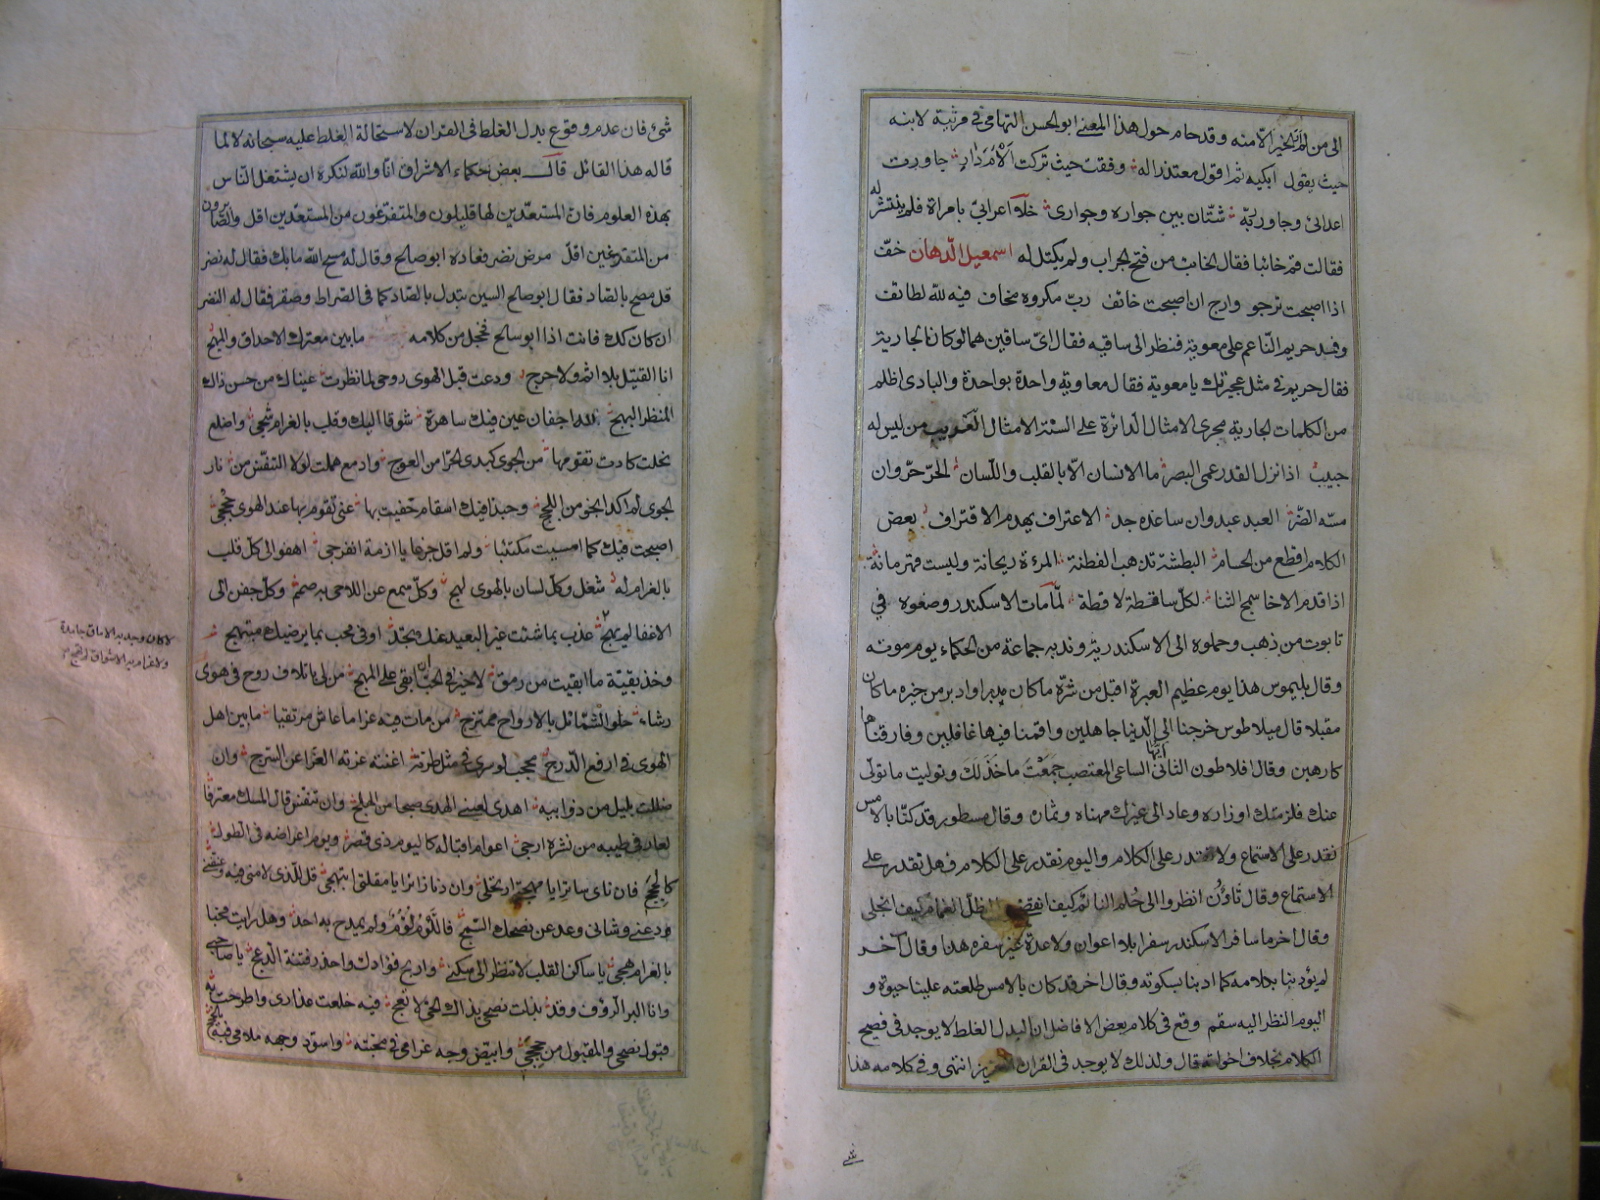 الى من لم تر الخير الا منه وقد حام حول هذا المعنى ابو الحسن التهامى فى مرثية لابنه
حيث يقول ابكيه ثم اقول معتذرا له وفقت حيث تركت ألأم دار جاورت
اعدائى وجاور ربه شتان بين جواره وجوارى خلا اعرابى بامراة فلم ينتشر له
فقالت قم خائبا فقال الخائب من فتح الجراب ولم يكتل له اسمعيل الدهان خف
اذا اصبحت ترجو وارج ان اصبحت خائف رب مكروه مخاف فيه لله لطائف
وفد حريم الناعم على معوية فنظر الى ساقيه فقال اى ساقين هما لو كانا لجارية
فقال حريم فى مثل عجيزتك يا معوية فقال معاوية واحدة بواحدة والبادى اظلم
من الكلمات الجارية مجرى الامثال الدائرة على السنة الامثال الغريب من ليس له
حبيب اذا نزل القدر عمى البصر ما الانسان الا بالقلب واللسان الحر حر وان
مسه الضر العبد عبد وان ساعده جد الاعتراف يهدم الاقتراف بعض
الكلام اقطع من الحسام البطشة تذهب الفطنة المرءة ريحانة وليست قهرمانة
اذا قدم الاخا سمج الثنا لكل ساقطة لاقطة لما مات الاسكندر وضعوه في
تابوت من ذهب وحملوه الى الاسكندرية وندبه جماعة من الحكماء يوم موته
وقال بليموس هذا يوم عظيم العبرة اقبل من شره ما كان مدبرا وادبر من خيره ما كان
مقبلا قال ميلاطوس خرجنا الى الدنيا جاهلين واقمنا فيها غافلين وفارقناها
كارهين وقال افلاطون الثانى ايها الساعى المغتصب جمعت ما خذلك وتوليت ما تولى
عنك فلزمتك اوزاره وعاد الى غيرك مهناه وثماره وقال مسطور قد كنا بالامس
نقدر على الاستماع ولا نقتدر على الكلام واليوم نقدر على الكلام فهل تقدر على
الاستماع وقال ثاون انظروا الى حلم النائم كيف انقضى والى ظل الغمام كيف انجلى
وقال اخر ما سافر الاسكندر سفرا بلا اعوان ولا عدة غير سفره هذا وقال آخر
لم يؤدبنا بكلامه كما ادبنا بسكوته وقال اخر قد كان بالامس طلعته علينا حيوة و
اليوم النظر اليه سقم وقع فى كلام بعض الافاضل ان البدل الغلط لا يوجد فى فصيح
الكلام بخلاف اخواته قال ولذلك لا يوجد فى القران العزيز انتهى وفى كلامه هذا
شئ فان عدم وقوع بدل الغلط فى القران لاستحالة الغلط عليه سبحانه لا لما
قاله هذا القائل قال بعض حكماء الاشراف انا والله لنكره ان يشتغل الناس
بهذه العلوم فان المستعدين لها قليلون والمتفرغون من المستعدين اقل والصابرون
من المتفرغين اقل مرض نضر فعاده ابو صالح وقال له مسح الله ما بك فقال له نضر
قل مصح بالصاد فقال ابو صالح السين تبدل بالصاد كما فى الصراط وصقر فقال له النضر
ان كان كذلك فانت اذا ابو سالح فخجل من كلامه ما بين معترك الاحداق والمهج
انا القتيل بلا اثم ولا حرج ودعت قبل الهوى روحى لما نظرت عيناك من حسن ذاك
المنظر البهج لله اجفان عين فيك ساهرة شوقا اليك وقلب بالغرام شجى واضلع
نحلت كادت تقومها من الجوى كبدى الحرا من العوج وادمع هملت لولا التنفس من نار
الجوى لم اكد انجو من اللجج وحبذا فيك اسقام خفيت بها عنى تقوم بها عند الهوى حججى
اصبحت فيك كما امسيت مكتئبا ولم اقل جزعا يا ازمة انفرجى اهفو الى كل قلب
بالغرام له شغل وكل لسان بالهوى لهج وكل سمع عن اللاحى به صمم وكل جفن الى
الاغفا لم يعج عذب بما شئت غير البعد عنك تجد اوفى محب بما يرضيك مبتهج
وخذ بقية ما ابقيت من رمق لا خير فى الحب ان ابقى على المهج من لى باتلاف روح فى هوى
رشاء حلو الشمائل بالارواح ممتزج من مات فيه غراما عاش مرتقيا ما بين اهل
الهوى فى ارفع الدرج محجب لو سرى فى مثل طرته اغنته غرته الغرا عن السرج وان
ضللت بليل من ذوائبه اهدى لعينى الهدى صبحا من البلج وان تنفس قال المسك معترفا
لعارفى طيبه من نشره ارجى اعوام اقباله كاليوم ذى قصر ويوم اعراضه فى الطول
كالحجج فان ناى سائرا يا مهجتى ارتحلى وان دنا زائرا يا مقلتى ابتهجى قل للذى لامنى فيه وعنفنى
ودعنى وشانى وعد عن نصحك السمج فاللوم لؤم ولم يمدح به احد وهل رايت محبا
بالغرام هجى يا ساكن القلب لا تنظر الى سكنى واربح فؤادك واحذر فتنة الدعج يا صاحبى
وانا البر الرؤف وقد بذلت نصحى بذاك الحى لا تعج فيه خلعت عذارى واطرحت به
قبول نصحى والمقبول من حججى وابيض وجه غرامى فى محبته واسود وجه ملامى فيه بالحجج